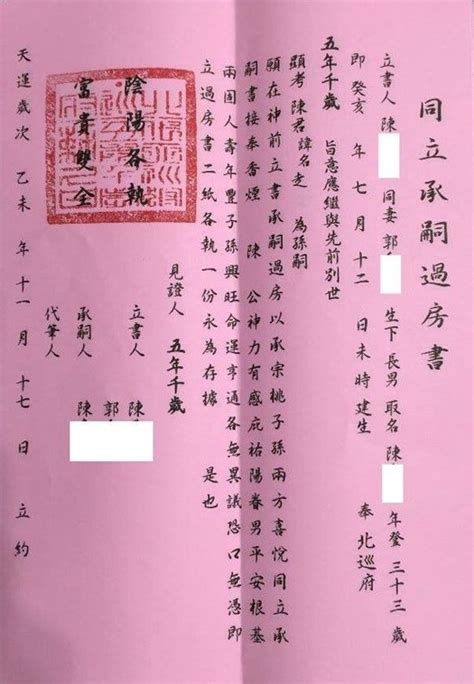 同立承嗣過房書
立書人 陳 同妻 郭 生下長男 取名 陳 年登 三十三 歲
即 癸亥 年 七 月 十二 日未時建生 奉 北巡府
五年千歲 旨意應繼與先前別世
顯考 陳君 諱名走 為孫嗣
願在神前立書承嗣過房以承宗祧子孫兩方喜悅同立承
嗣書接奉香煙 陳 公神力有感庇祐陽眷男平安根基
兩固人壽年豐子孫興旺命運亨通各無異議恐口無憑即
立過房書二紙各執一份永為存據 是也
見證人 五年千歲
陰陽各執
富貴雙全
立書人 陳
郭
承嗣人 陳
代筆人
天運歲次 乙未 年 十一 月 十七 日 立約